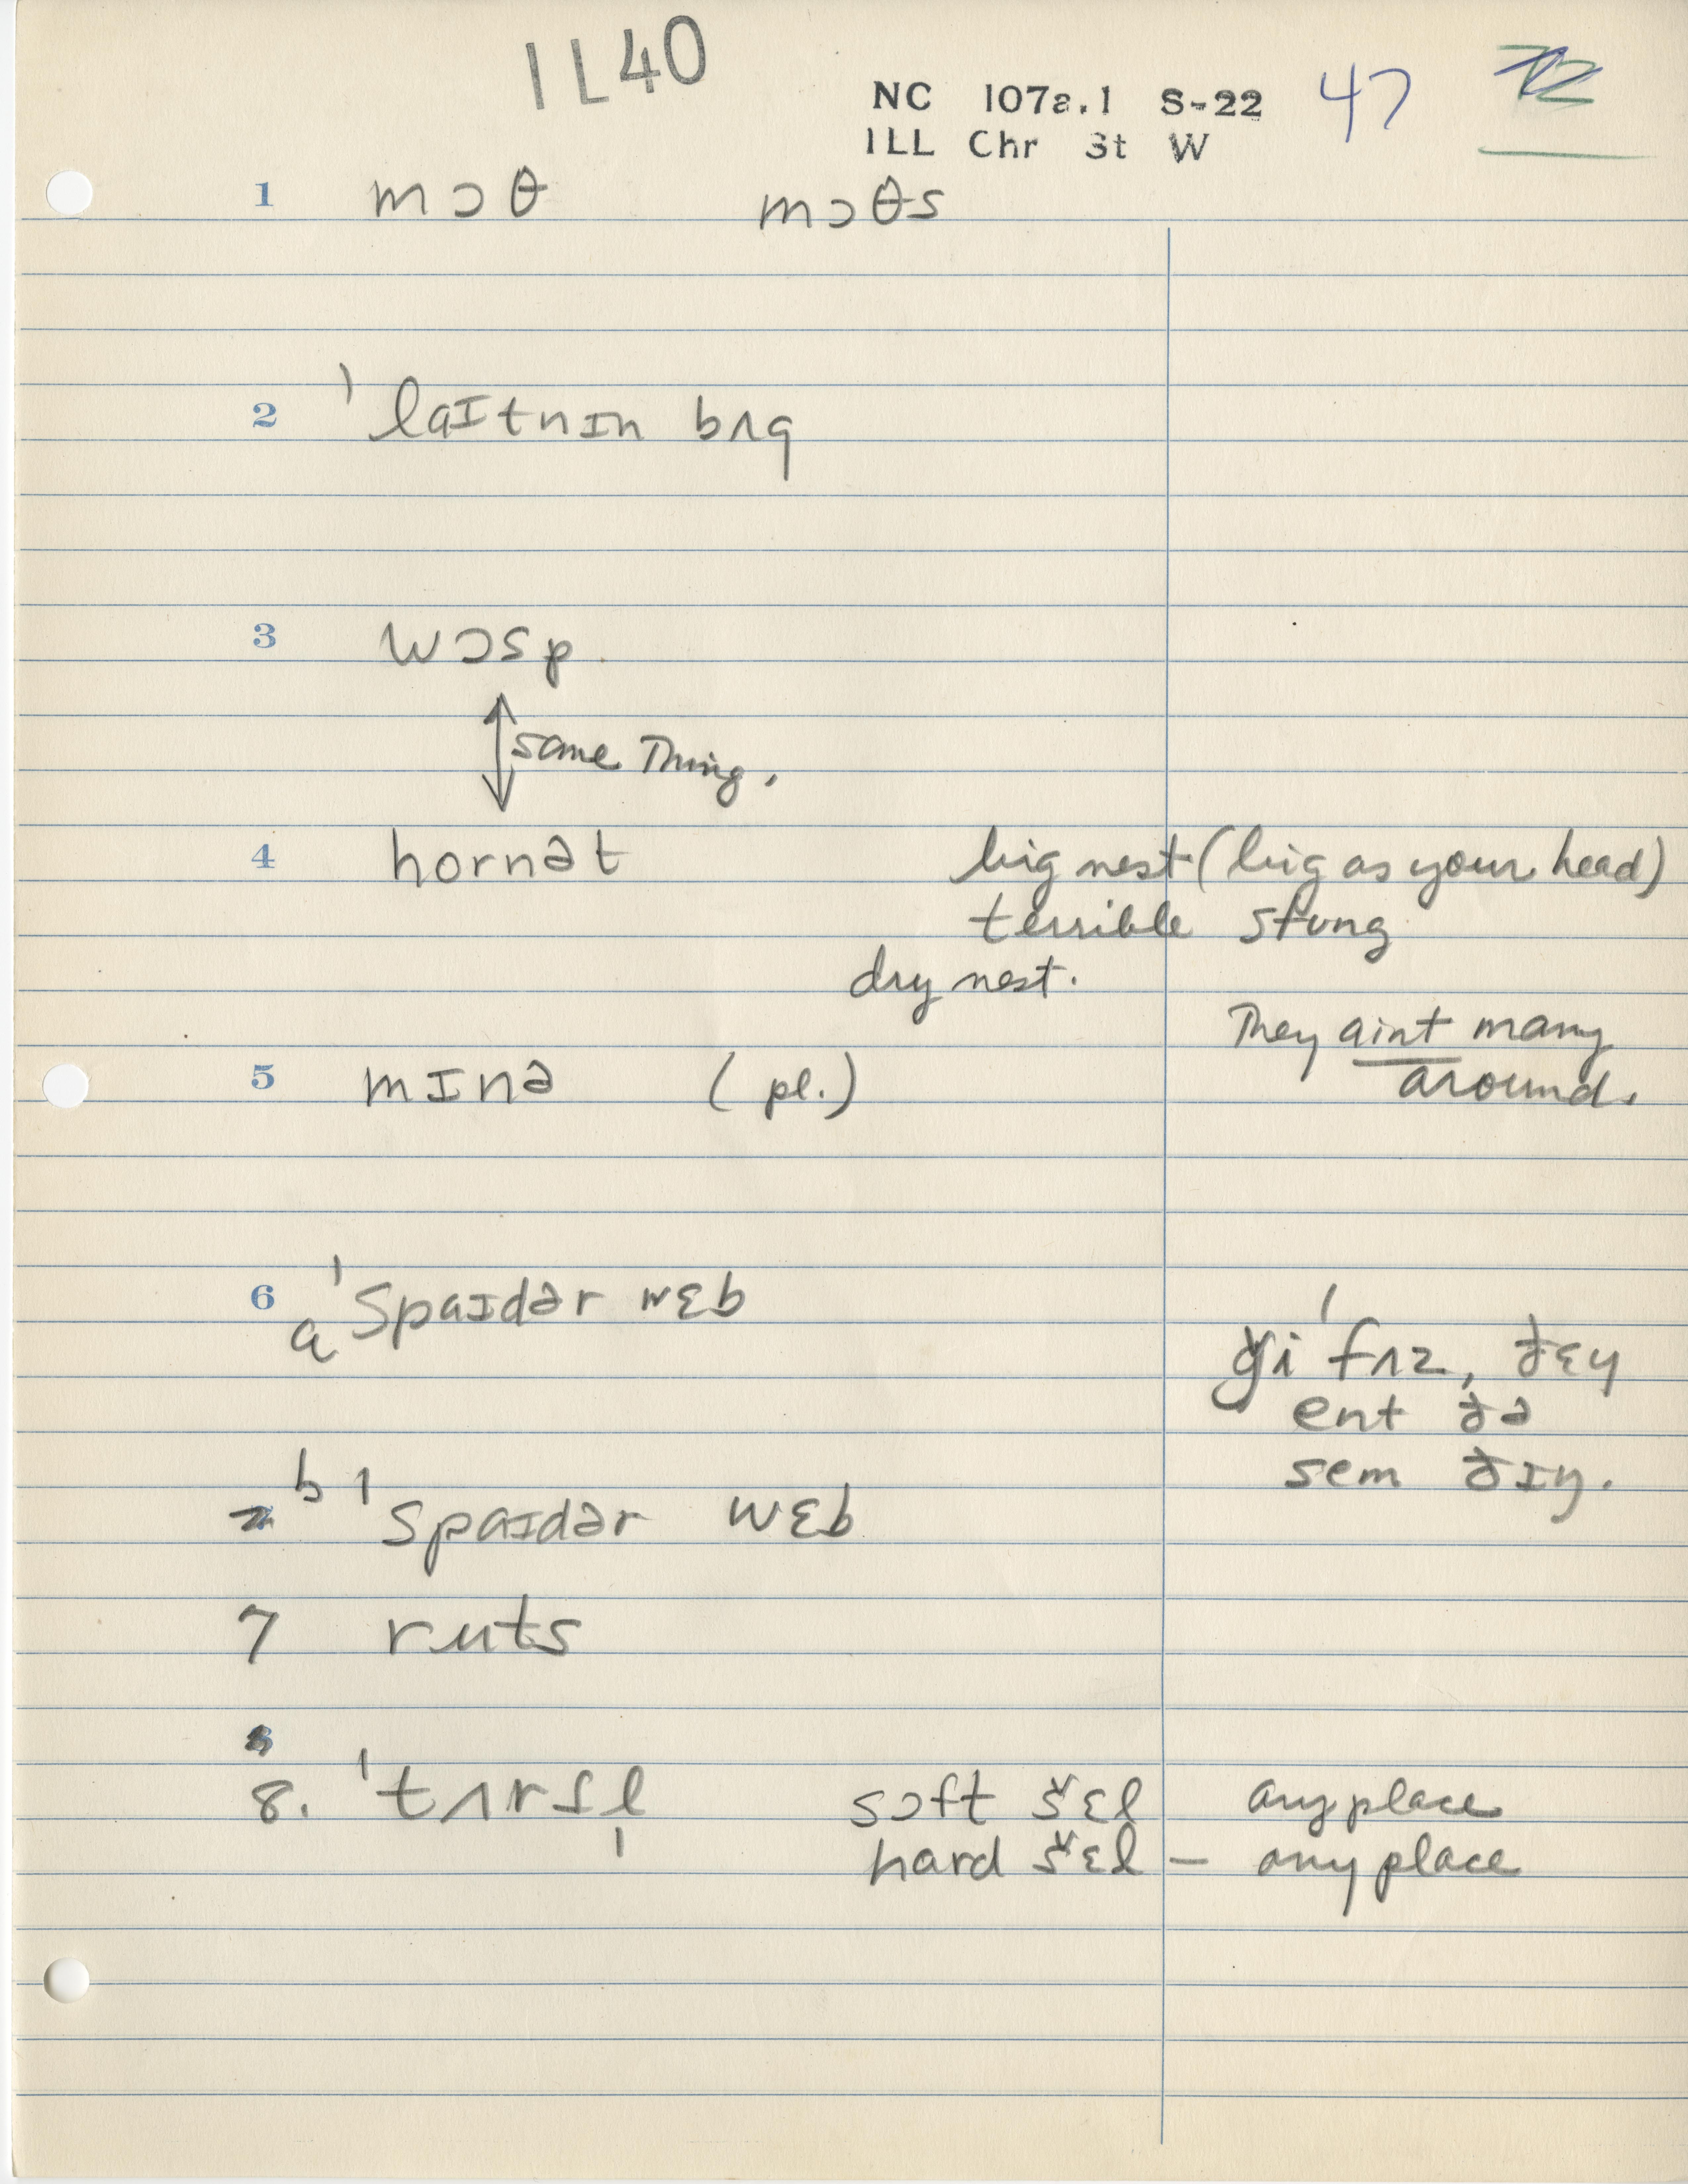 IL40
NC 107a.1 S-22 47
ILL Chr St W
1 mɔθ mɔθs
2 ˈlaɪtnɪn bʌg
3 wɔsp
same Thing.
4 hornət big nest (big as your head)
terrible stung
dry nest.
They aint many
around.
5 mɪnə (pl.)
6 a ˈspaɪdər wɛb
fʌz, ðɛy
ent ðə
sem ðɪŋ.
b ˈspaɪdər wɛb
7 ruts
8. ˈtʌrtl̩ sɔft šɛl – any place
hard šɛl – any place